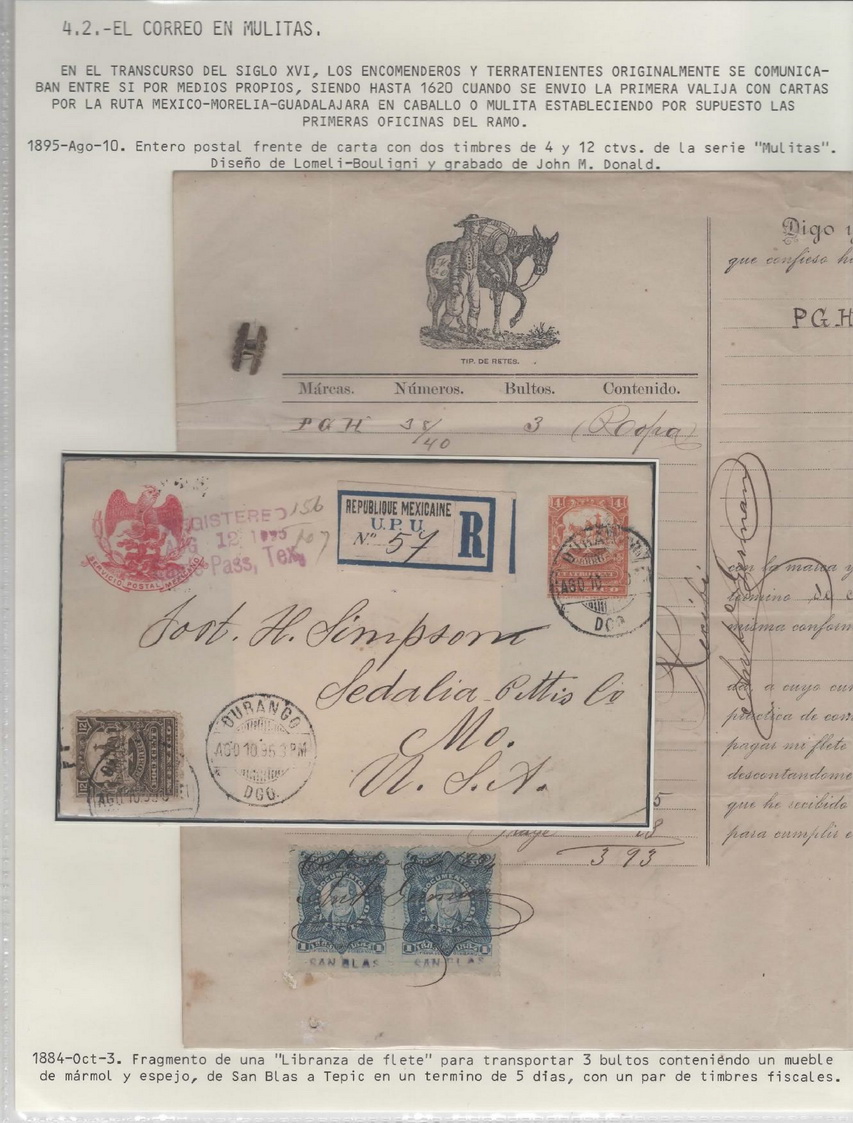 4.2.-EL CORREO EN MULITAS.
EN EL TRANSCURSO DEL SIGLO XVI, LOS ENCOMENDEROS Y TERRATENIENTES ORIGINALMENTE SE COMUNICA-
BAN ENTRE SI POR MEDIOS PROPIOS, SIENDO HASTA 1620 CUANDO SE ENVIO LA PRIMERA VALIJA CON CARTAS
POR LA RUTA MEXICO-MORELIA-GUADALAJARA EN CABALLO O MULITA ESTABLECIENDO POR SUPUESTO LAS
PRIMERAS OFICINAS DEL RAMO.
1895-Ago-10. Entero postal frente de carta con dos timbres de 4 y 12 ctvs. de la serie "Mulitas".
Diseño de Lomeli-Bouligni y grabado de John M. Donald.
Digo y
que confieso
PGH
TIP. DE RETES.
Márcas. Números. Bultos. Contenido.
PGH 38/40 3 (Ropa)
SERVICIO POSTAL MEXICANO
GISTERED
12 1895
Pass, Tex.
156
107
REPUBLIQUE MEXICAINE
U.P.U.
Nº 57 R
4 4
DURANGO
AGO 10
DGO.
Post. H. Simpson
Sedalia Pettis Co
Mo.
U. S. A.
12
DURANGO
AGO 10 95 3 PM
DGO.
AGO 10 95
Recibí
con la marca y
término de
misma conform
da, a cuyo
práctica de
pagar mi flete
descontandome
que he recibido
para cumplir
5
18
3 93
DOCUMENTOS DOCUMENTOS
SAN BLAS SAN BLAS
1884-Oct-3. Fragmento de una "Libranza de flete" para transportar 3 bultos conteniéndo un mueble
de mármol y espejo, de San Blas a Tepic en un termino de 5 días, con un par de timbres fiscales.